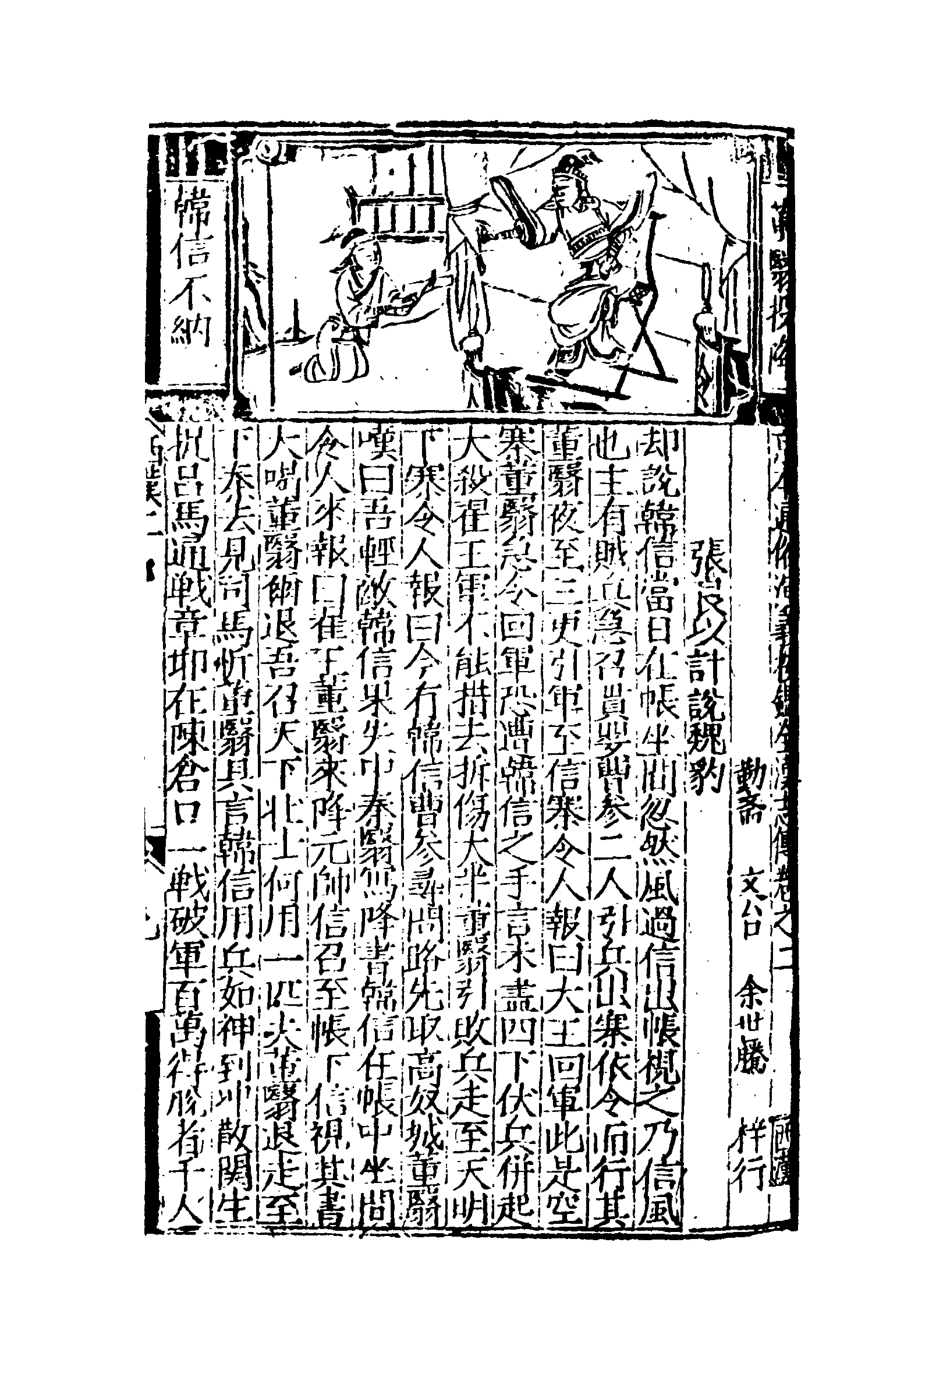 董翳投降
韓信不納
京本通俗演義按鑑全漢志傳卷之二 西漢
勤斋 文台 余世騰 梓行
張良以計說魏豹
却說韓信當日在帳坐間忽然風過信出帳視之乃信風
也主有賊兵急召貫嬰曹参二人引兵出寨依令而行其
董翳夜至三更引軍至信寨令人報曰大王回軍此是空
寨董翳忽令回軍恐遭韓信之手言未盡四下伏兵併起
大殺翟王軍不能措去折傷大半董翳引敗兵走至天明
下寨令人報曰今有韓信曹参尋間路先取高奴城董翳
嘆曰吾輕敵韓信果失中秦翳寫降書韓信在帳中坐間
令人來報曰翟王董翳來降元帥信召至帳下信視其書
大喝董翳爾退吾召天下壯士何用一匹夫董翳退走至
下奉去見司馬忻董翳具言韓信用兵如神到此散関生
捉呂馬通戰章邯在陳倉口一戰破軍百萬得脫者千人
西漢二